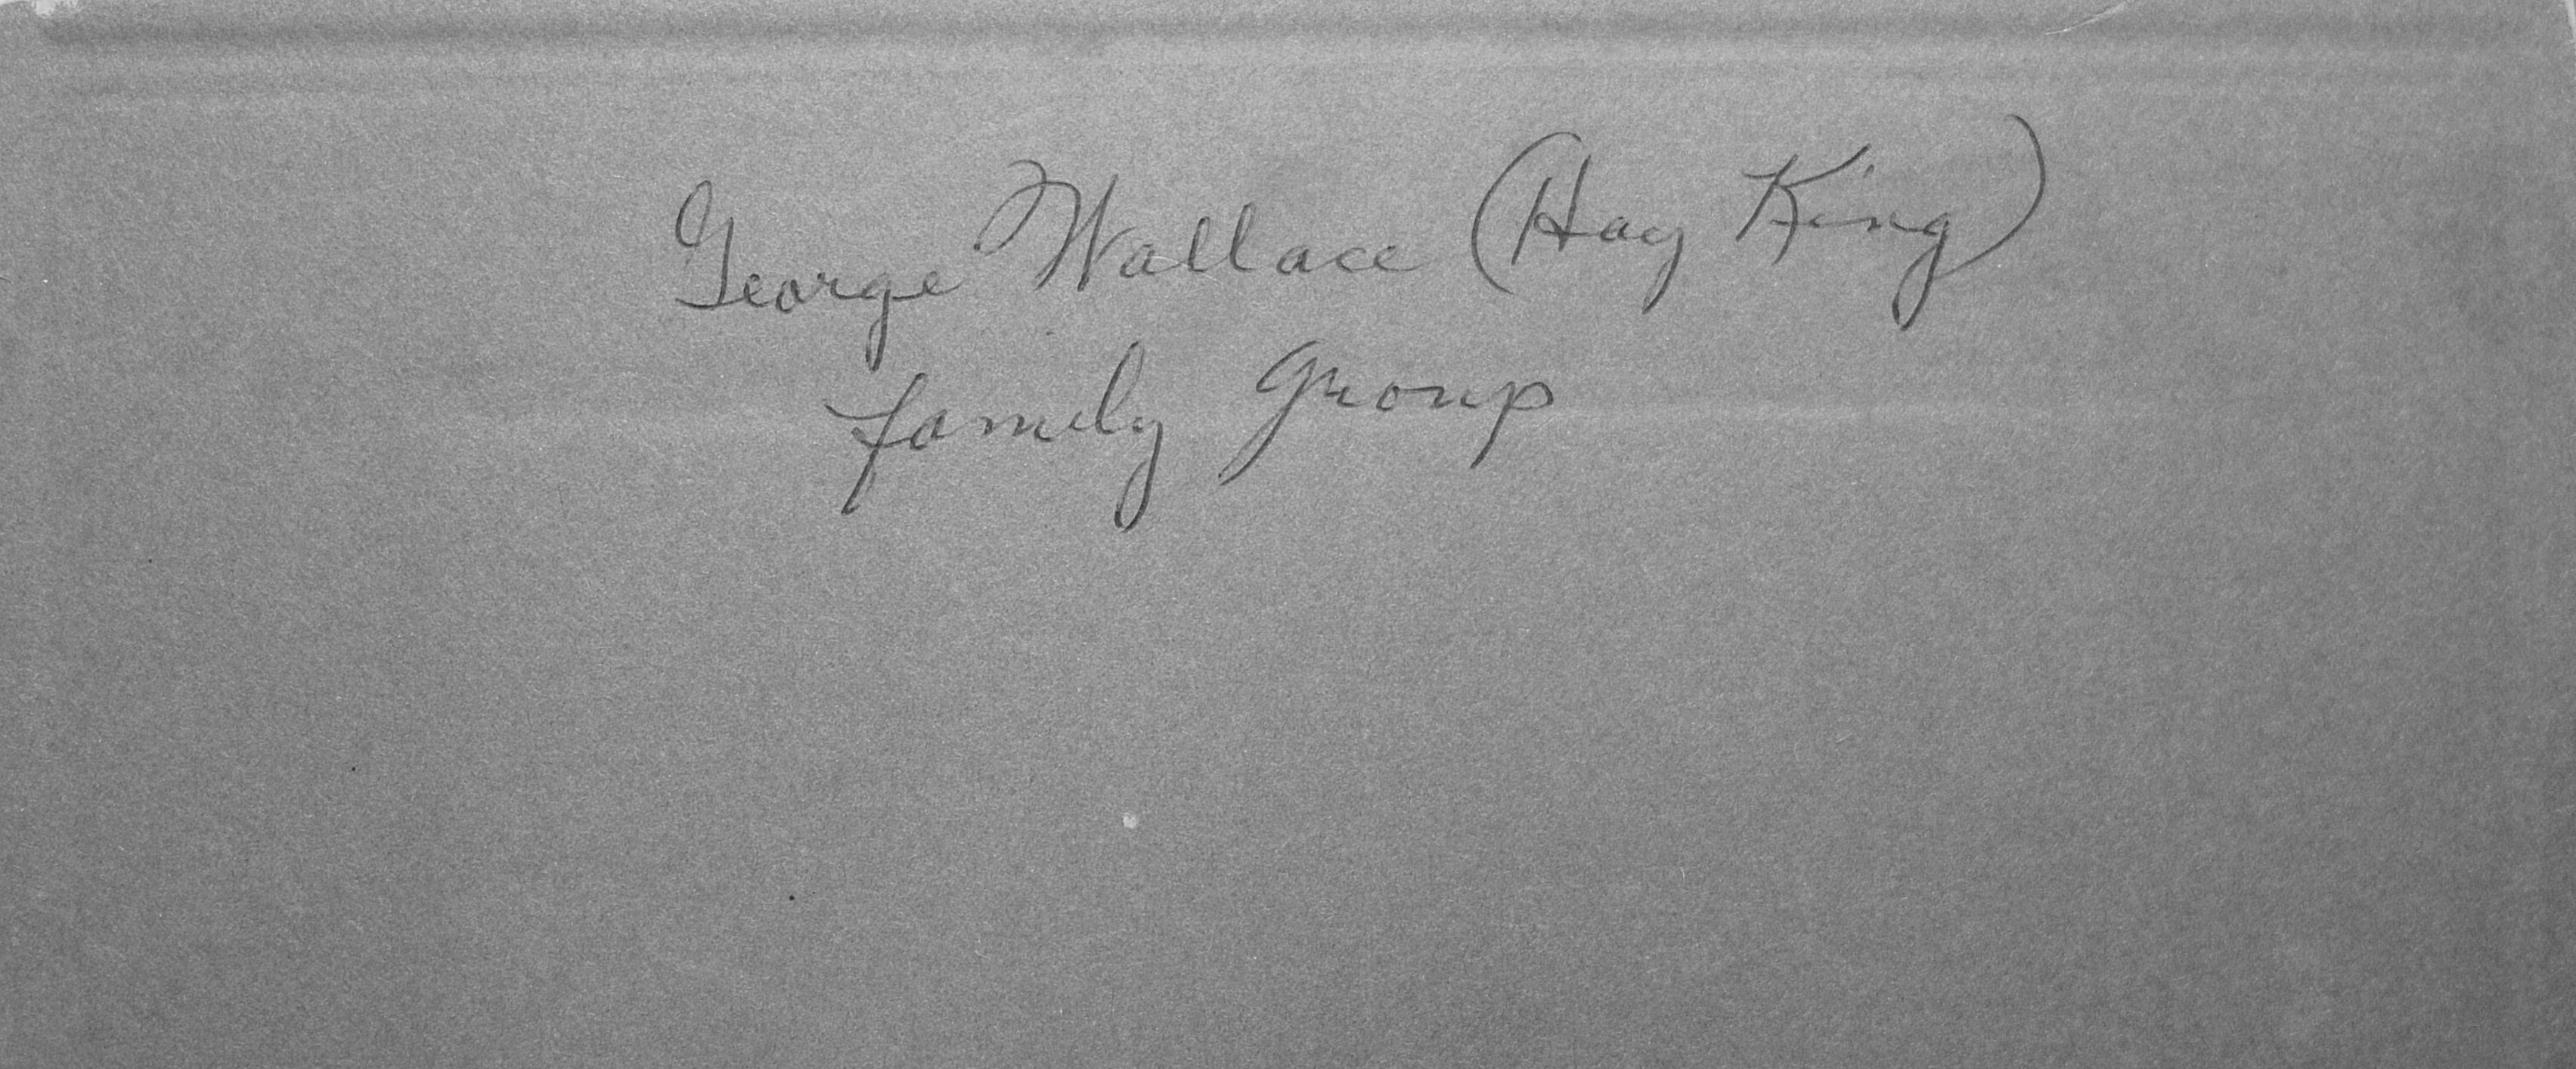 George Wallace (Hay King)
family group